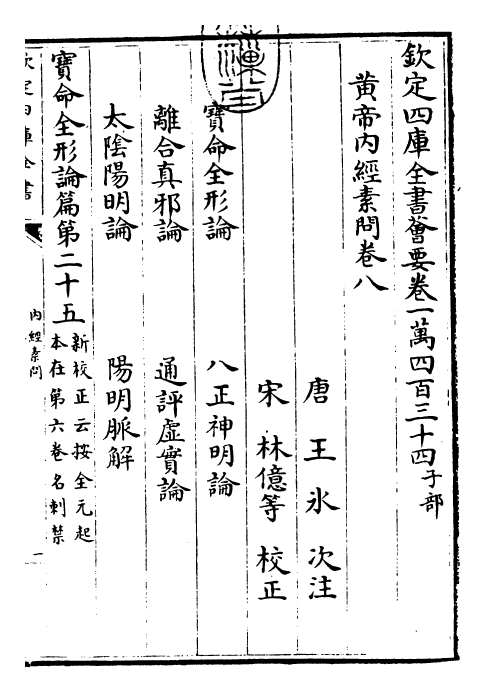 欽定四庫全書薈要卷一萬四百三十四子部
黄帝內經素問卷八
唐 王 氷 次注
宋 林億等 校正
寶命全形論 八正神明論
離合真邪論 通評虛實論
太陰陽明論 陽明脈解
寶命全形論篇第二十五新校正云按全元起
本在第六卷名刺禁
欽定四庫全書
內經素問
一